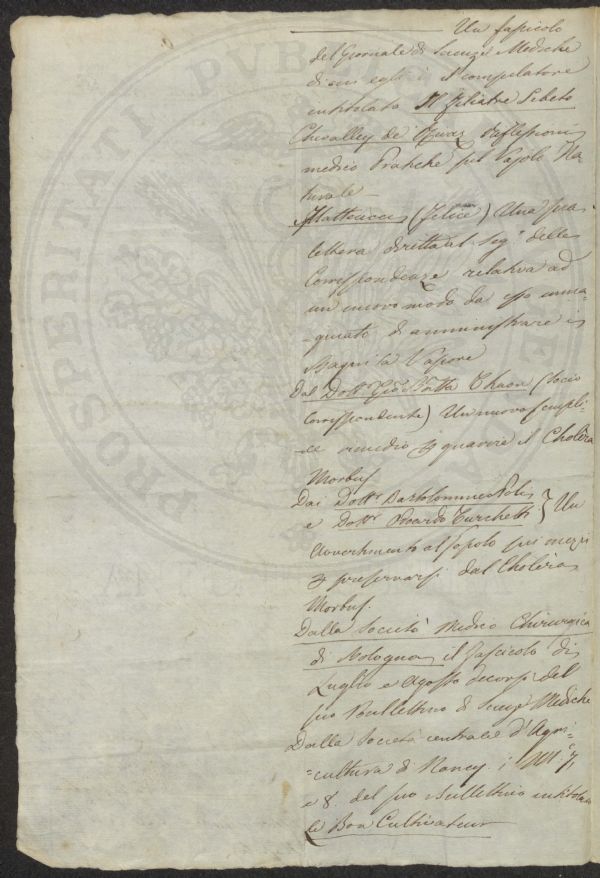 Un fascicolo
del Giornale di Scienze Mediche
di cui egli è il compilatore
intitolato Il filiatre Sebeto
Chevalley de Rivaz Riflessioni
medico Pratiche sul Vajolo Na-
turale –
Matteucci (Felice) Una sua
lettera diretta al Seg.º delle
Corrispondenze relativa ad
un nuovo modo da esso imma-
-ginato di amministrare i
Bagni a Vapore
Dal Dott. Gio Batta Thaon (Socio
Corrispondente) Un nuovo semplice
-ce rimedio guarire il Cholèra
Morbus
Dai Dott. Bartolommeo Poli
e Dott. Odoardo Turchetti } Un
Avvertimento al Popolo sui mezzi
preservarsi dal Cholèra
Morbus.
Dalla Società Medico Chirurgica
di Bologna il fascicolo di
Luglio e Agosto decorsi del
suo Bullettino di Scienze Mediche
Dalla Società centrale d'Agri-
=cultura di Nancy i 7
e 8. del suo Bullettino intitolato
le Bon Cultivateur
PROSPERITATI PVBLICAE